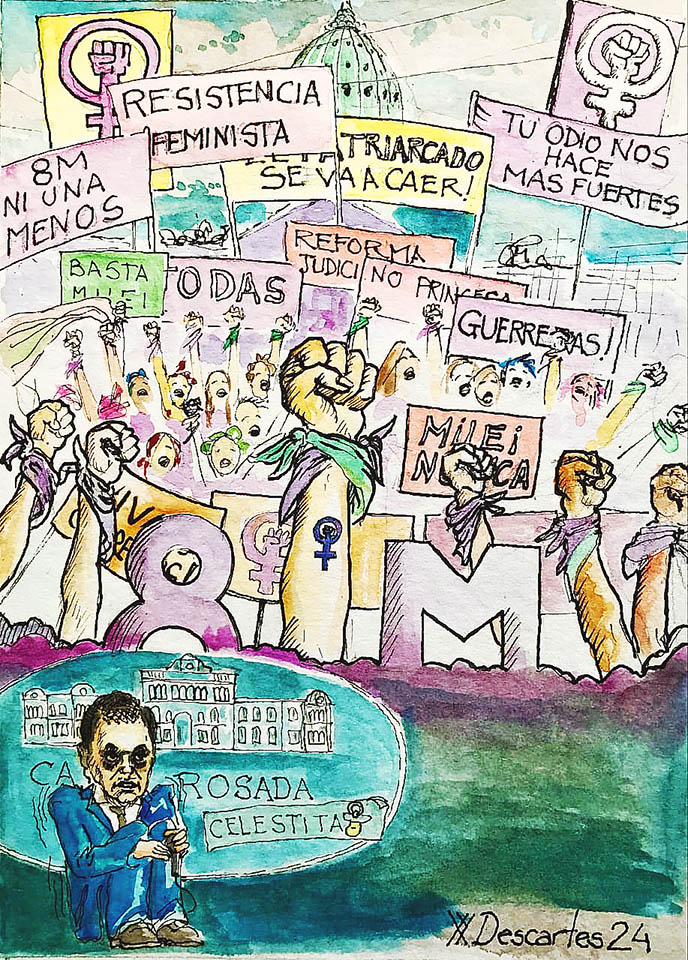 RESISTENCIA
FEMINISTA
8M
NI UNA
MENOS
PATRIARCADO
SE VA A CAER!
TU ODIO NOS
HACE
MAS FUERTES
BASTA
MILEI
TODAS
REFORMA
JUDICI
NO PRINCESA
GUERRERAS!
MiLEi
N CA
8M
CA ROSADA
CELESTITA
Descartes 24